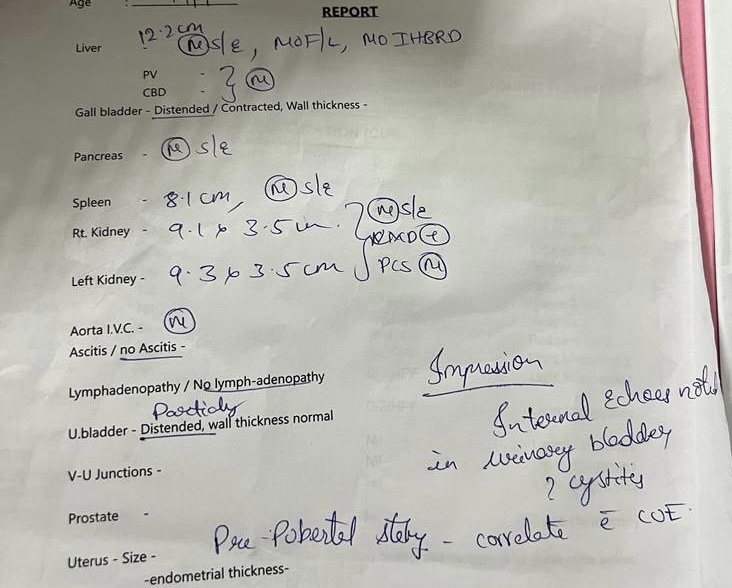 Age :
REPORT
Liver 12.2cm (N) S/E, NO F/L, NO IHBRD
PV -
CBD - } (N)
Gall bladder - Distended / Contracted, Wall thickness -
Pancreas - (N) S/E
Spleen - 8.1 cm, (N) S/E
Rt. Kidney - 9.1 x 3.5 cm. } (N) S/E
CMD (+)
Left Kidney - 9.3 x 3.5 cm PCS (N)
Aorta I.V.C. - (N)
Ascitis / no Ascitis -
Lymphadenopathy / No lymph-adenopathy
Partialy
U.bladder - Distended, wall thickness normal
V-U Junctions -
Prostate -
Uterus - Size - Pre-Pobertal
-endometrial thickness-
Impression
Internal echoes noted
in urinary bladder
? cystitis
- correlate c̄ CUE.